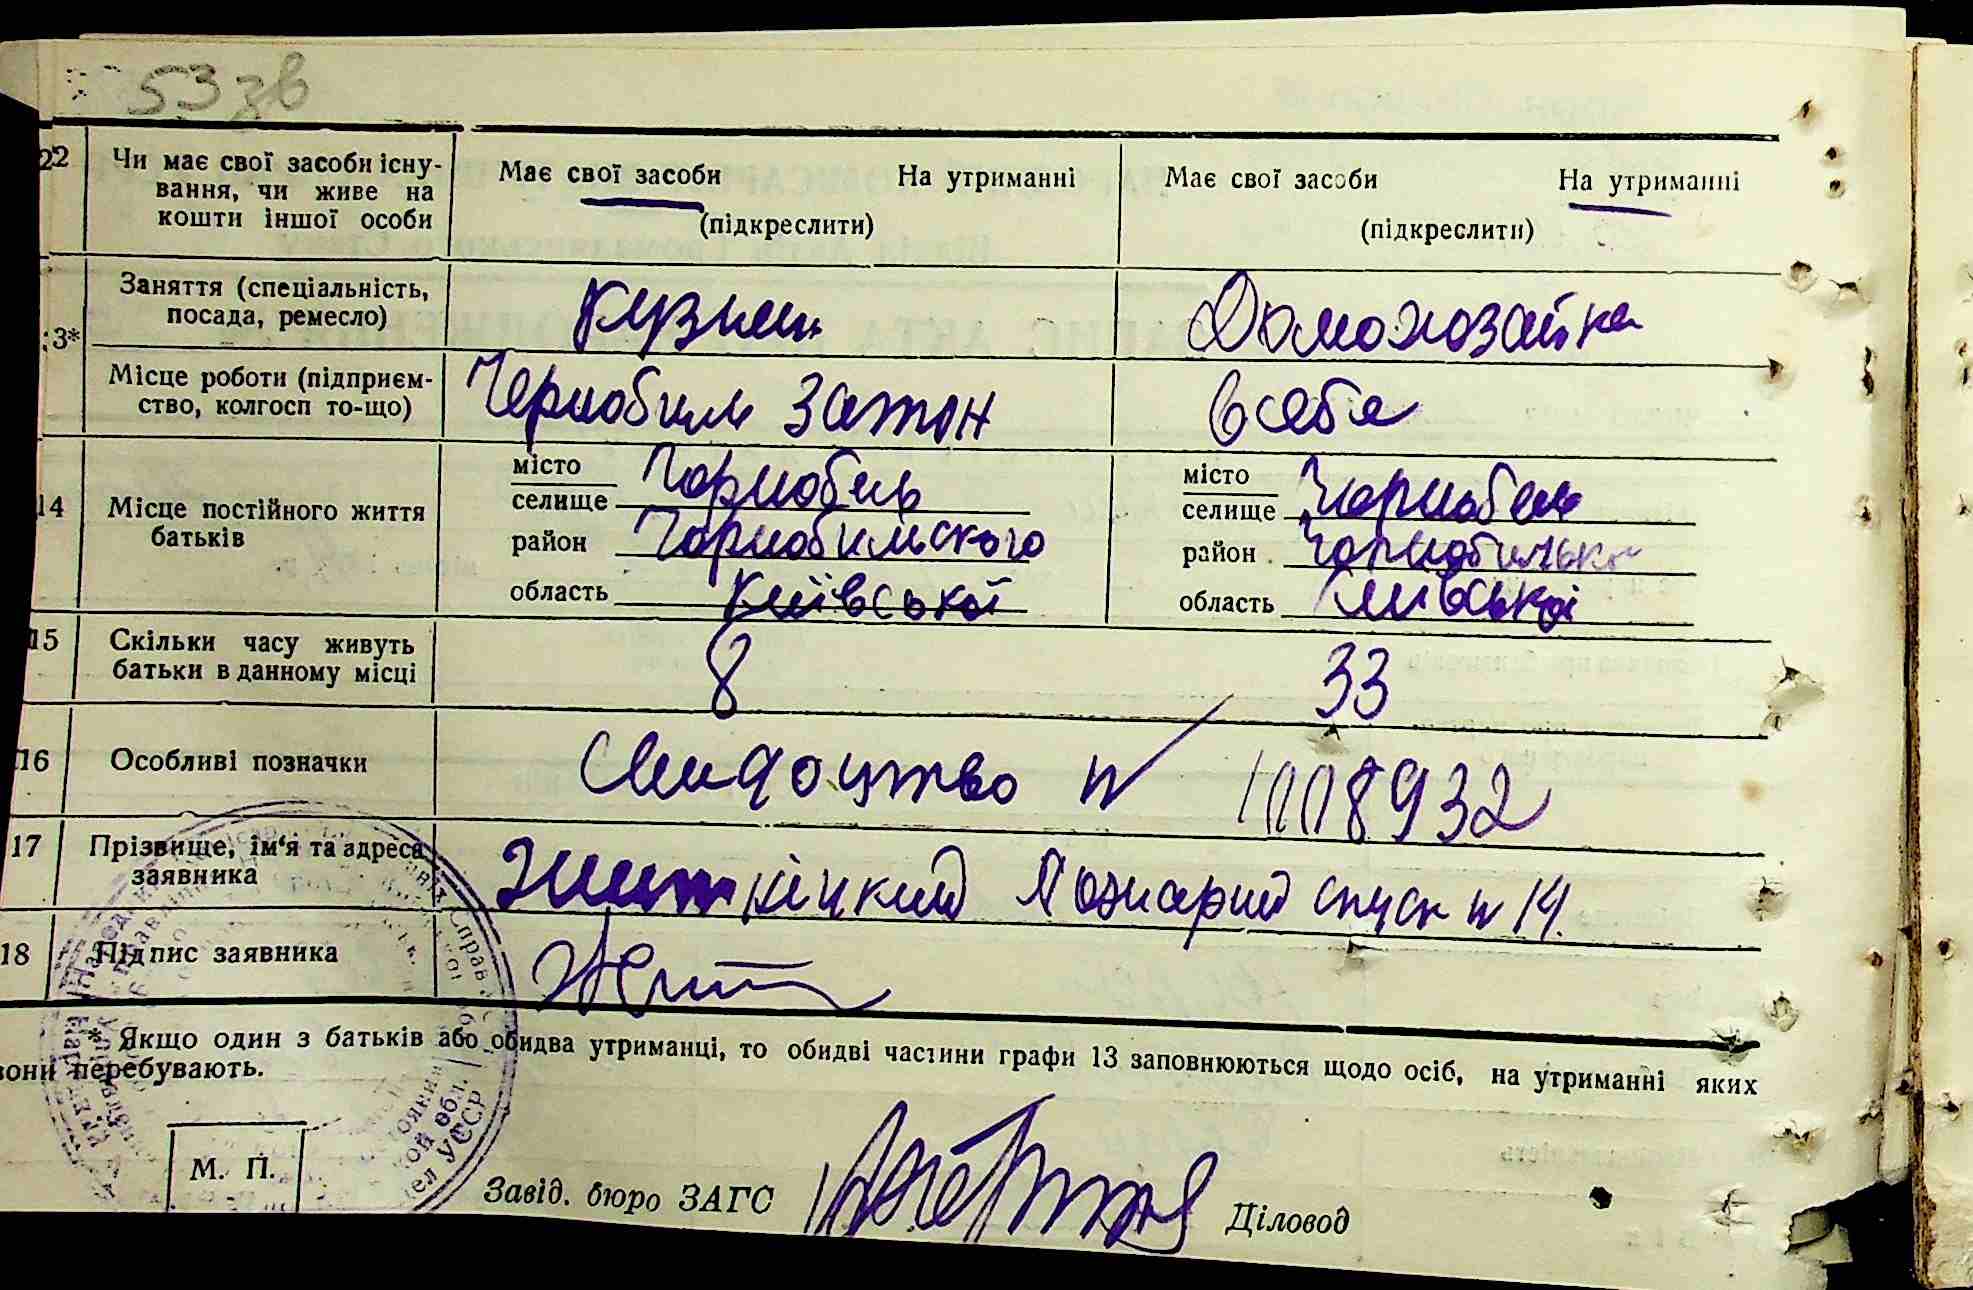 53 зв
22 Чи має свої засоби існу-
вання, чи живе на
кошти іншої особи
Має свої засоби На утриманні
(підкреслити)
Має свої засоби На утриманні
(підкреслити)
13* Заняття (спеціальність,
посада, ремесло)
Домохозайка
Місце роботи (підприєм-
ство, колгосп то-що)
Чернобиль Затон
14 Місце постійного життя
батьків
місто
селище Чорнобель
район Чорнобильского
область Київської
місто
селище Чорнобель
район
область Київської
15 Скільки часу живуть
батьки в данному місці
8 33
16 Особливі позначки
Свидоцтво № 1008932
17 Прізвище, ім'я та адреса
заявника
Пожарний спуск № 14.
18 Підпис заявника
* Якщо один з батьків або обидва утриманці, то обидві частини графи 13 заповнюються щодо осіб, на утриманні яких
вони перебувають.
М. П.
Завід. бюро ЗАГС
Діловод